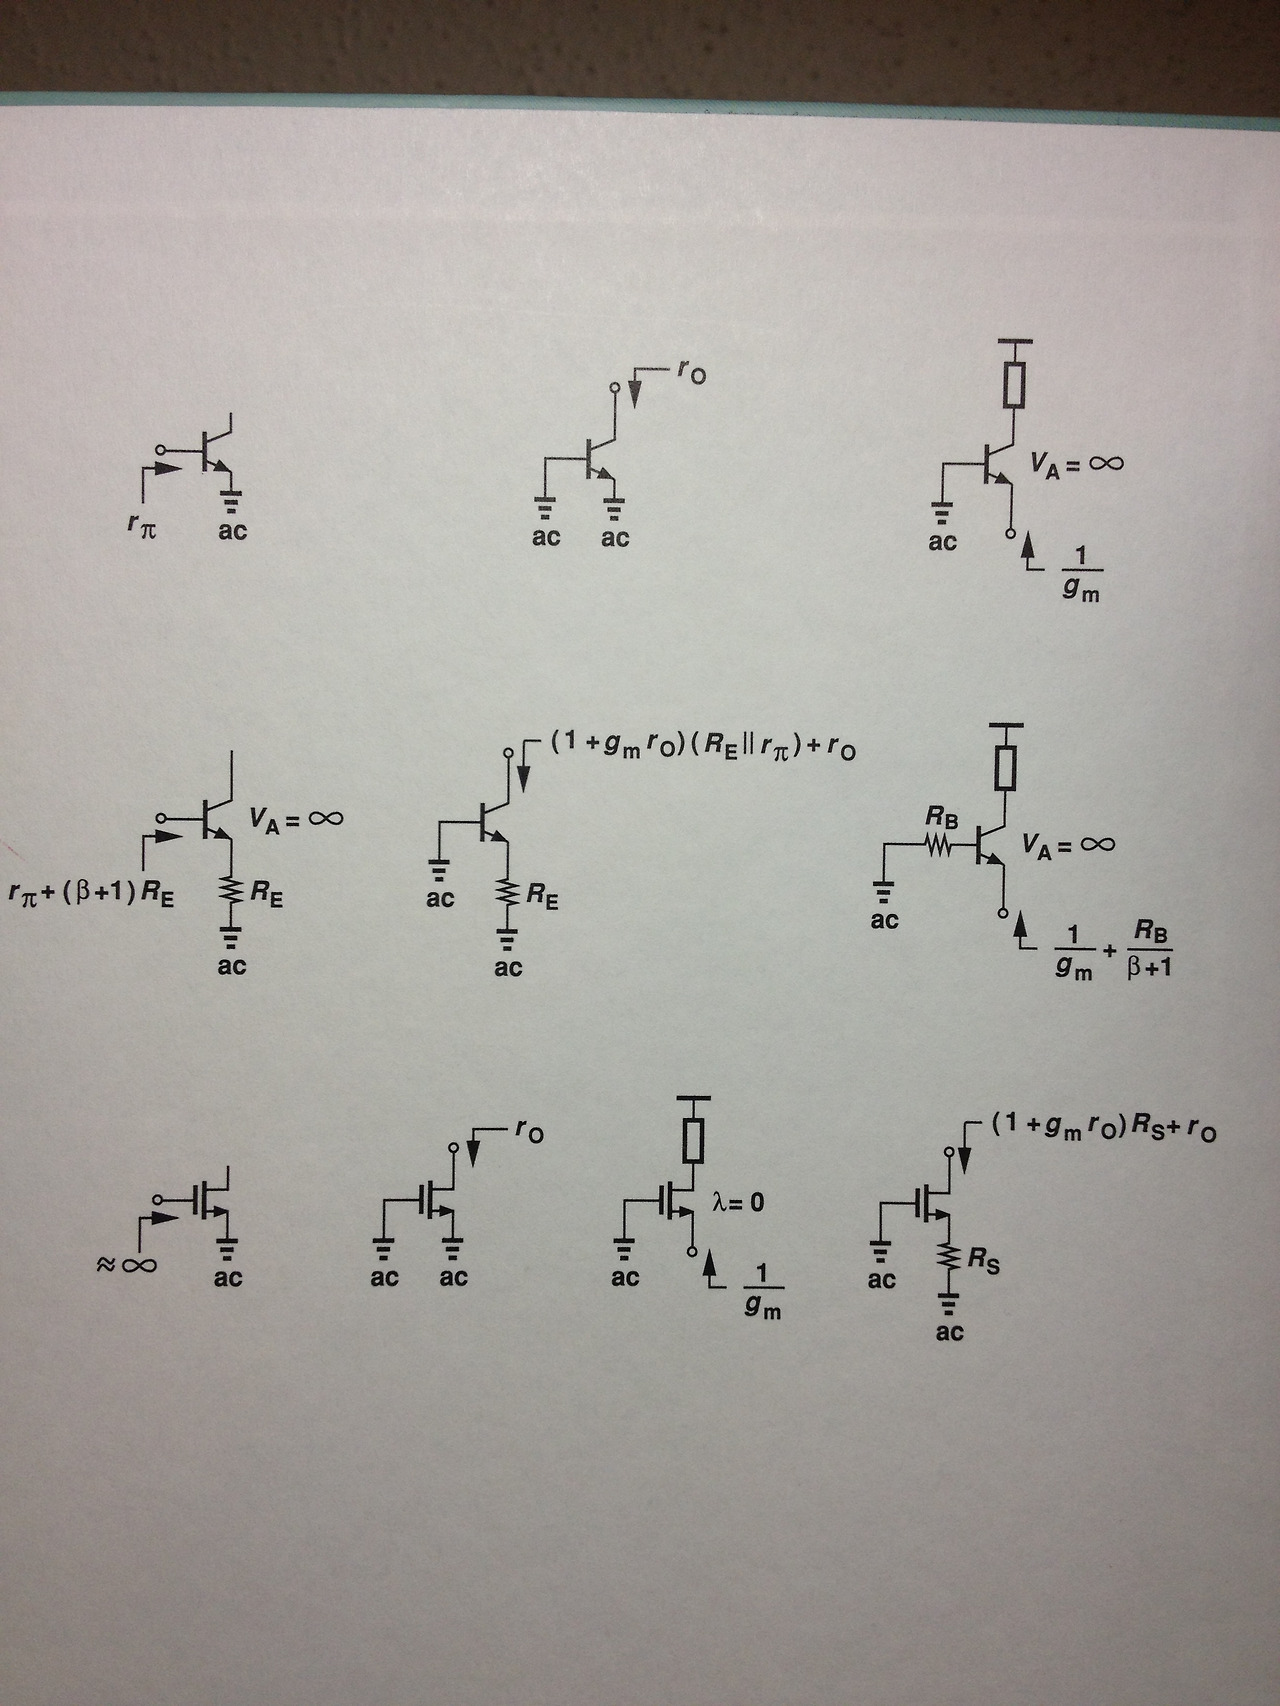 rπ
ac
rO
ac ac
VA = ∞
ac
1/gm
VA = ∞
rπ + (β+1) RE
RE
ac
(1 + gm rO) (RE || rπ) + rO
ac
RE
ac
RB
VA = ∞
ac
1/gm + RB/β+1
≈ ∞
ac
rO
ac ac
λ = 0
ac
1/gm
(1 + gm rO) RS + rO
ac
RS
ac